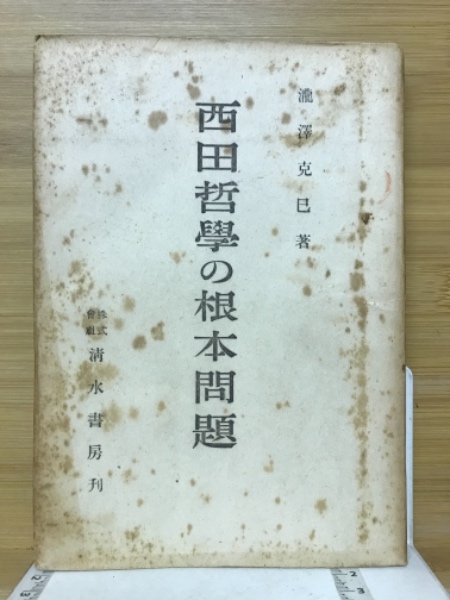 瀧澤克巳著
西田哲學の根本問題
株式會社 清水書房刊
2
3